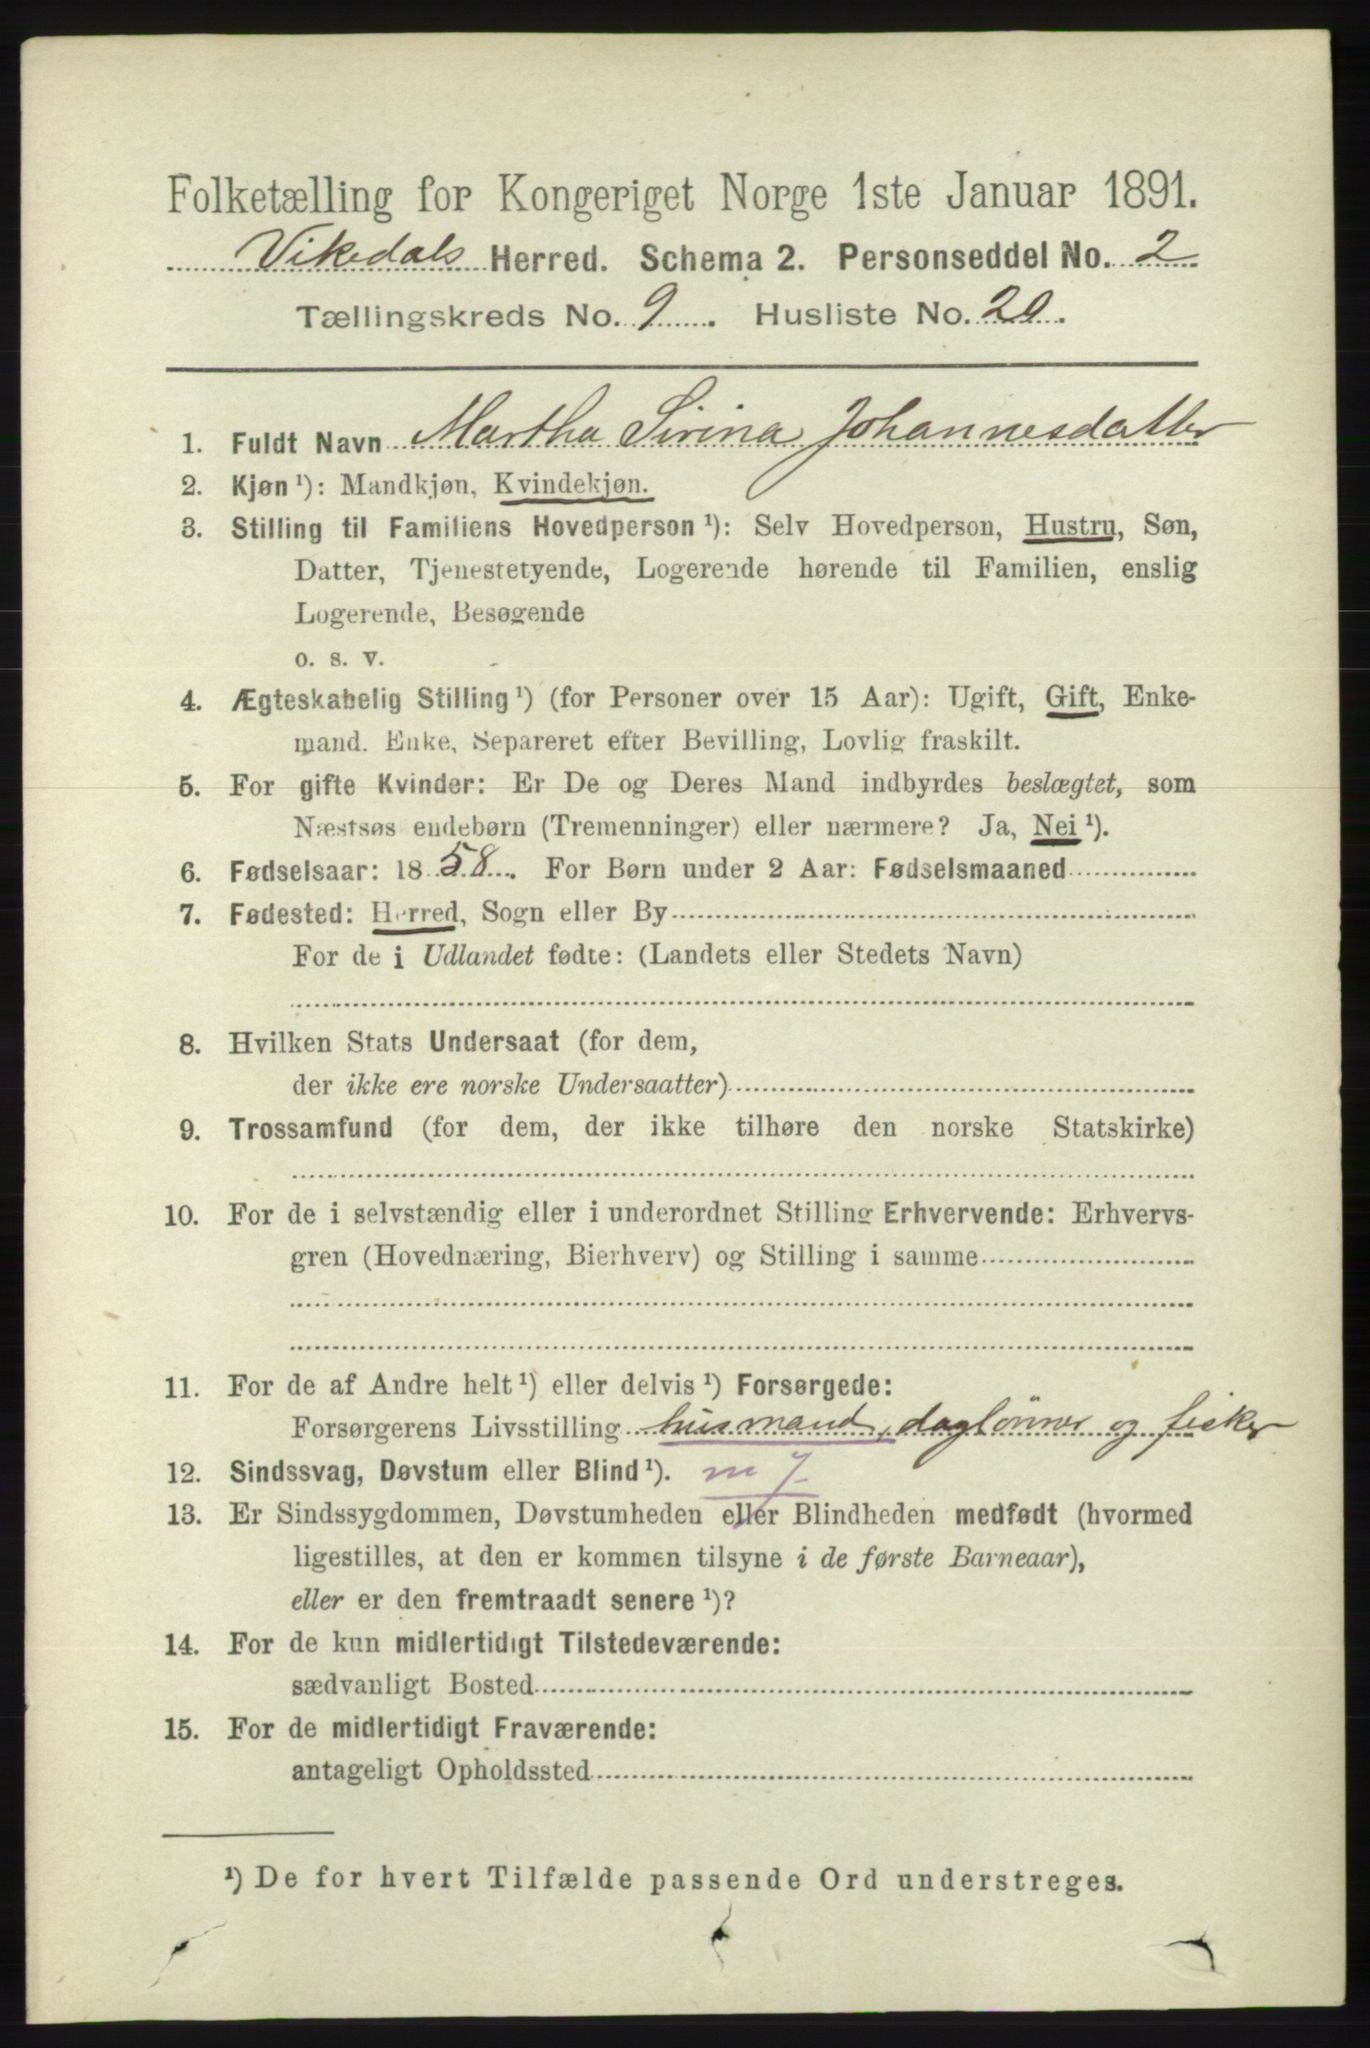 Folketælling for Kongeriget Norge 1ste Januar 1891.
Vikedals Herred. Schema 2. Personseddel No. 2
Tællingskreds No. 9. Husliste No. 20.
1. Fuldt Navn Martha Sirina Johannesdatter
2. Kjøn ¹): Mandkjøn, Kvindekjøn.
3. Stilling til Familiens Hovedperson ¹): Selv Hovedperson, Hustru, Søn,
Datter, Tjenestetyende, Logerende hørende til Familien, enslig
Logerende, Besøgende
o. s. v.
4. Ægteskabelig Stilling ¹) (for Personer over 15 Aar): Ugift, Gift, Enke-
mand. Enke, Separeret efter Bevilling, Lovlig fraskilt.
5. For gifte Kvinder: Er De og Deres Mand indbyrdes beslægtet, som
Næstsøs endebørn (Tremenninger) eller nærmere? Ja, Nei ¹).
6. Fødselsaar: 1858. For Børn under 2 Aar: Fødselsmaaned
7. Fødested: Herred, Sogn eller By
For de i Udlandet fødte: (Landets eller Stedets Navn)
8. Hvilken Stats Undersaat (for dem,
der ikke ere norske Undersaatter)
9. Trossamfund (for dem, der ikke tilhøre den norske Statskirke)
10. For de i selvstændig eller i underordnet Stilling Erhvervende: Erhvervs-
gren (Hovednæring, Bierhverv) og Stilling i samme
11. For de af Andre helt ¹) eller delvis ¹) Forsørgede:
Forsørgerens Livsstilling husmand, daglönner og fisker
12. Sindssvag, Døvstum eller Blind ¹). m 7
13. Er Sindssygdommen, Døvstumheden eller Blindheden medfødt (hvormed
ligestilles, at den er kommen tilsyne i de første Barneaar),
eller er den fremtraadt senere ¹)?
14. For de kun midlertidigt Tilstedeværende:
sædvanligt Bosted
15. For de midlertidigt Fraværende:
antageligt Opholdssted
¹) De for hvert Tilfælde passende Ord understreges.